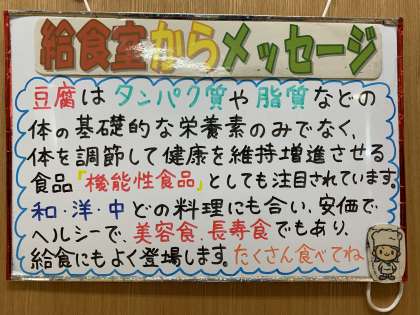 給食室からメッセージ
豆腐はタンパク質や脂質などの
体の基礎的な栄養素のみでなく、
体を調節して健康を維持増進させる
食品「機能性食品」としても注目されています。
和・洋・中どの料理にも合い、安価で
ヘルシーで、美容食、長寿食でもあり、
給食にもよく登場します。たくさん食べてね